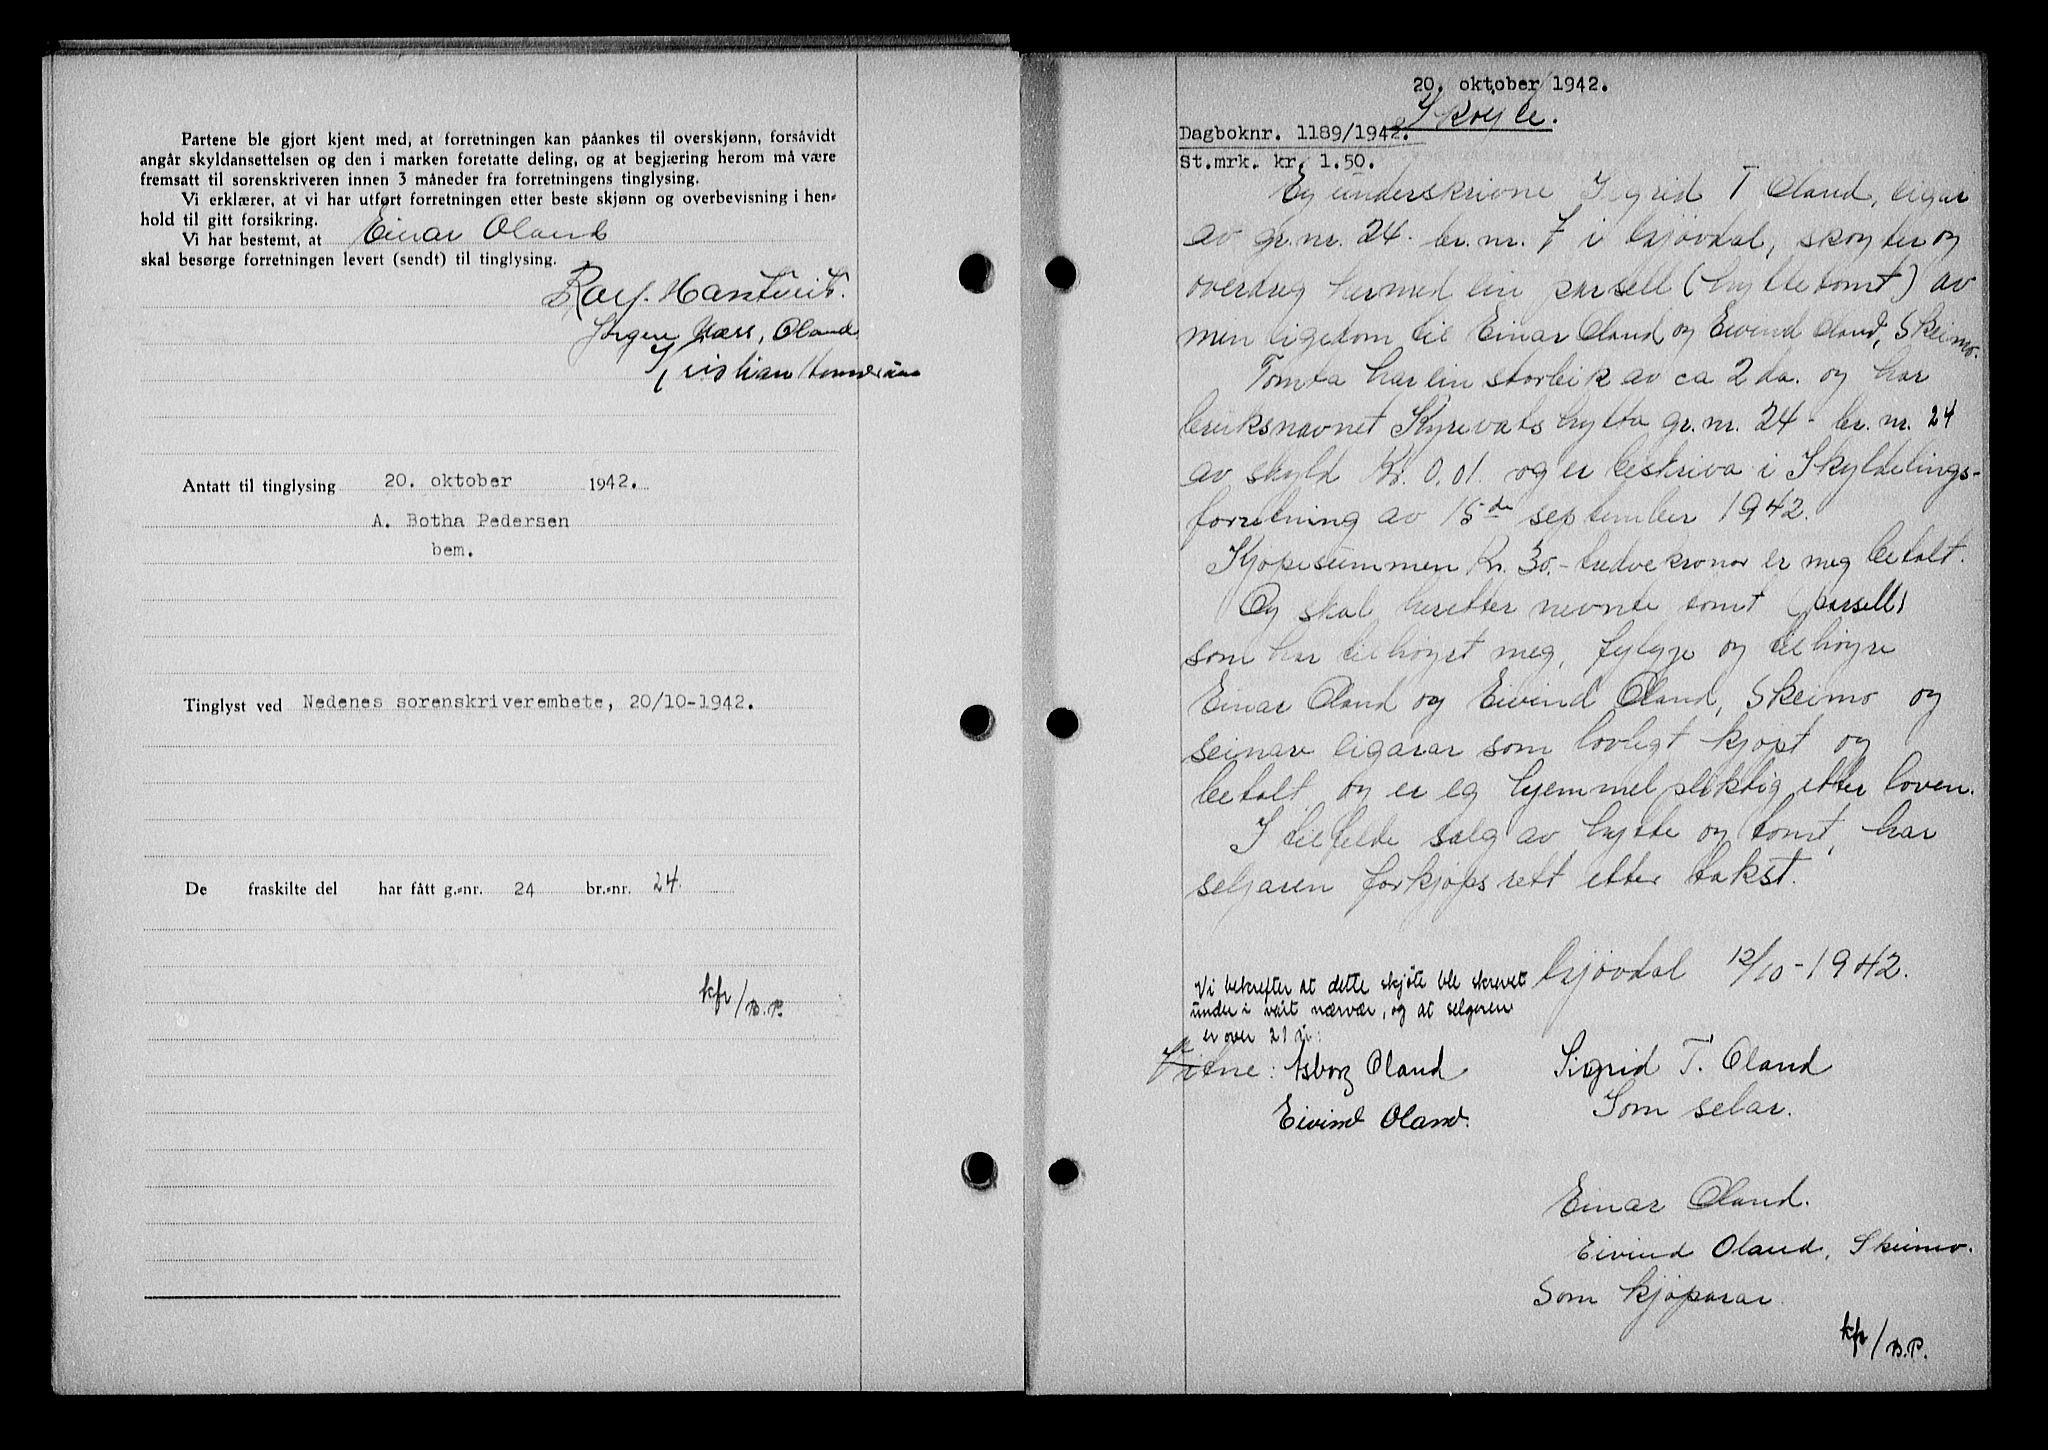 Partene ble gjort kjent med, at forretningen kan påankes til overskjønn, forsåvidt
angår skyldansettelsen og den i marken foretatte deling, og at begjæring herom må være
fremsatt til sorenskriveren innen 3 måneder fra forretningens tinglysing.
Vi erklærer, at vi har utført forretningen etter beste skjønn og overbevisning i hen-
hold til gitt forsikring.
Vi har bestemt, at Einar Oland
skal besørge forretningen levert (sendt) til tinglysing.
Jørgen Oland
Kristian
Antatt til tinglysing 20. oktober 1942.
A. Botha Pedersen
bem.
Tinglyst ved Nedenes sorenskriverembete, 20/10-1942.
De fraskilte del har fått g.-nr. 24 br.-nr. 24.
kfr/B.P.
20. oktober 1942.
Skøyte.
Dagboknr. 1189/1942.
St.mrk. kr. 1.50.
Eg underskrivne Sigrid T Oland, eigar
av gr.nr. 24 - br.nr. 7 i Gjøvdal, skøyter og
overdreg hermed ein parsell (hyttetomt) av
min eigedom til Einar Oland og Eivind Oland, Skeimo.
Tomta har ein storleik av ca 2 da. og har
bruksnavnet Kyrevatshytta gr.nr. 24 - br. nr. 24
av skyld Kr. 0.01. og er beskriva i Skyldelings-
forretning av 15de september 1942.
Kjøpesummen Kr. 30.- tredve kronor er meg betalt.
Og skal heretter nevnte tomt (parsell)
som har tilhøyrt meg, fylgje og tilhøyre
Einar Oland og Eivind Oland, Skeimo og
seinare eigarar som lovligt kjøpt og
betalt, og er eg hjemmel pliktig etter loven.
I tilfelde salg av hytte og tomt, har
seljaren forkjøpsrett etter takst.
Gjøvdal 12/10-1942.
Vi bekrefter at dette skjøte ble skrevet
under i vårt nærvær, og at selgeren
er over 21 år:
Vitne: Asborg Oland
Eivind Oland.
Sigrid T. Oland
Som selar.
Einar Oland.
Eivind Oland, Skeimo.
Som kjøparar.
kfr/B.P.